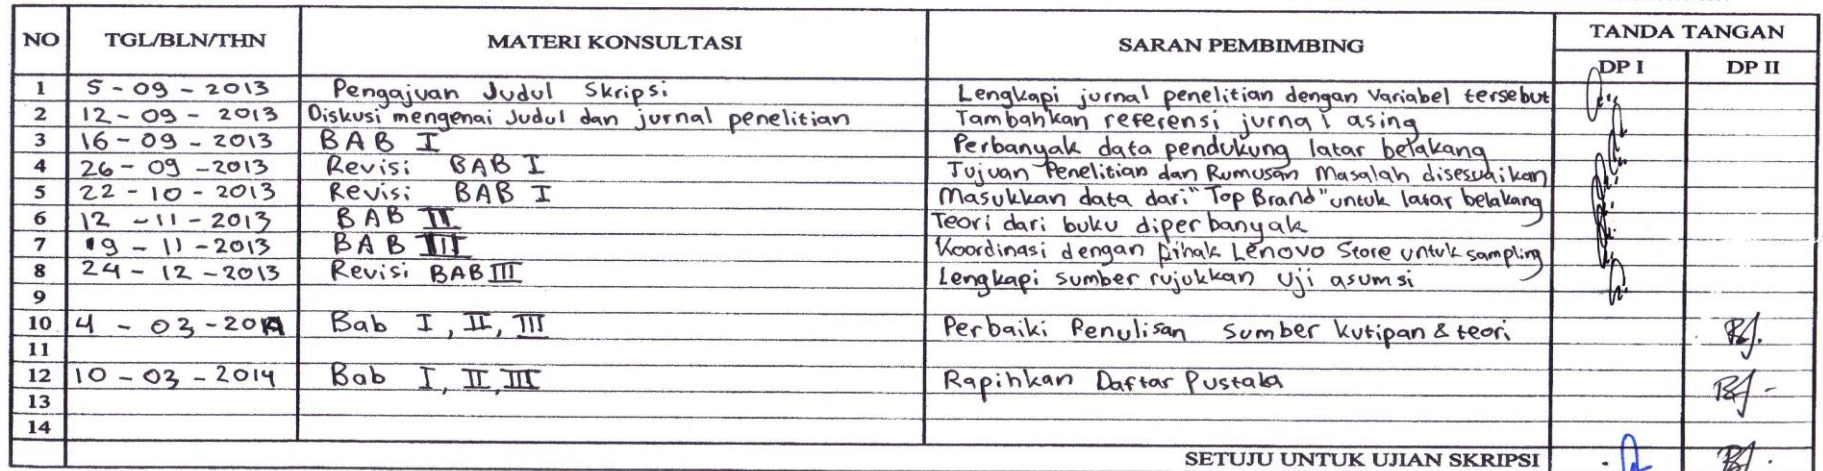 NO TGL/BLN/THN MATERI KONSULTASI SARAN PEMBIMBING TANDA TANGAN
DP I DP II
1 5 - 09 - 2013 Pengajuan Judul Skripsi Lengkapi jurnal penelitian dengan Variabel tersebut
2 12 - 09 - 2013 Diskusi mengenai Judul dan jurnal penelitian Tambahkan referensi jurnal asing
3 16 - 09 - 2013 BAB I Perbanyak data pendukung latar belakang
4 26 - 09 - 2013 Revisi BAB I Tujuan Penelitian dan Rumusan Masalah disesuaikan
5 22 - 10 - 2013 Revisi BAB I Masukkan data dari "Top Brand" untuk latar belakang
6 12 - 11 - 2013 BAB II Teori dari buku diperbanyak
7 19 - 11 - 2013 BAB III Koordinasi dengan pihak Lenovo Store untuk sampling
8 24 - 12 - 2013 Revisi BAB III Lengkapi sumber rujukkan Uji asumsi
9
10 4 - 03 - 2014 Bab I, II, III Perbaiki Penulisan Sumber kutipan & teori
11
12 10 - 03 - 2014 Bab I, II, III Rapihkan Daftar Pustaka
13
14
SETUJU UNTUK UJIAN SKRIPSI